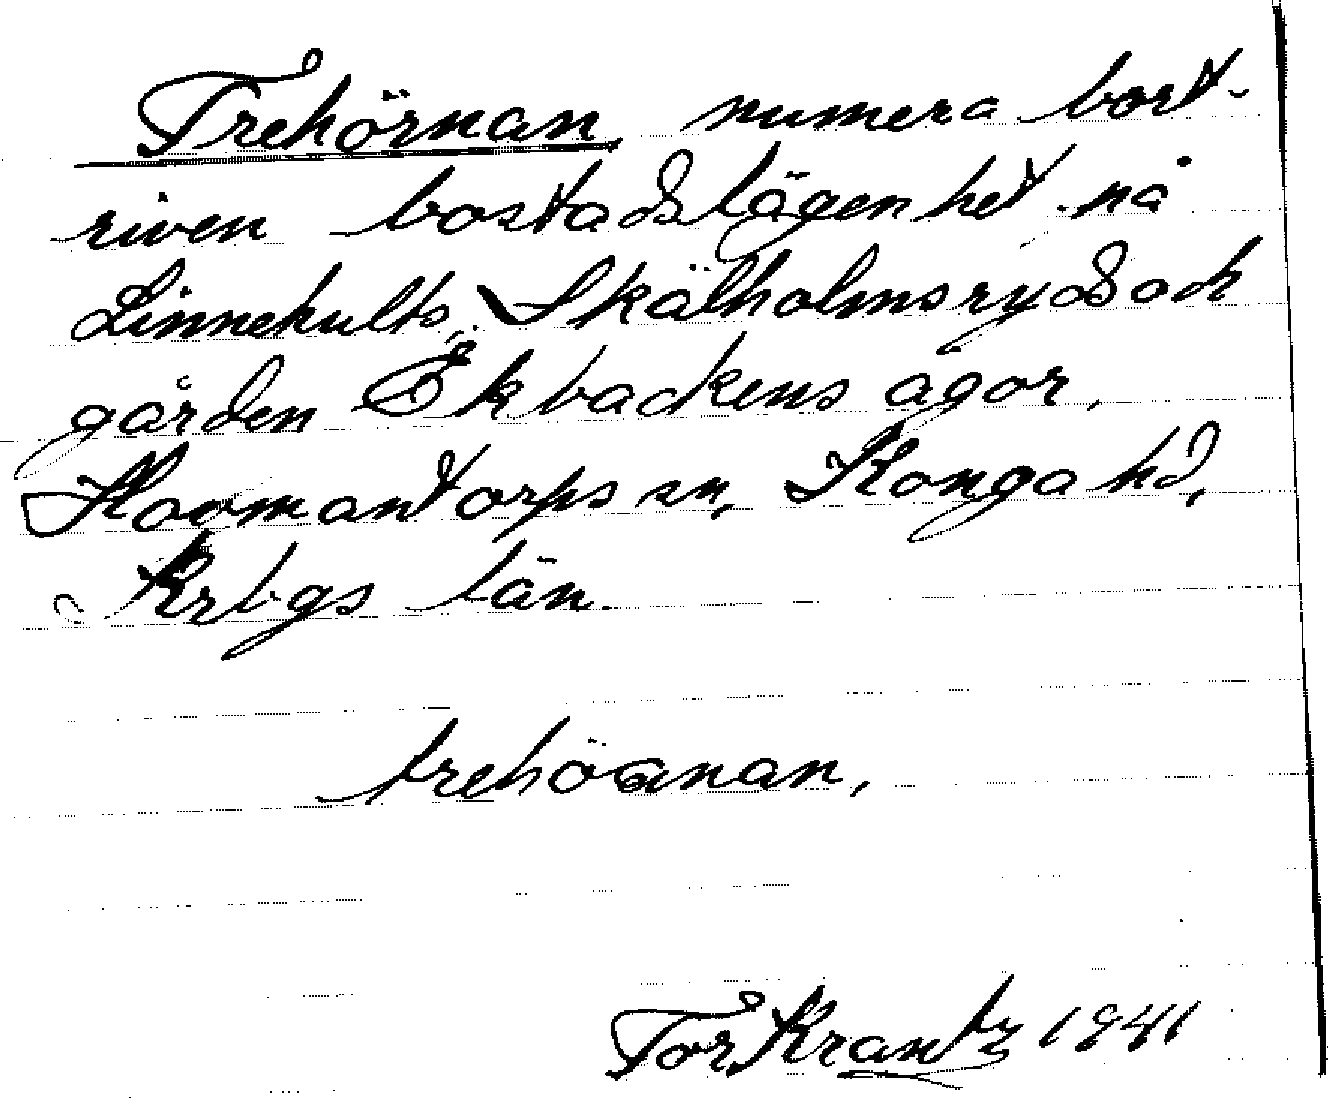 Trehörnan, numera bort-
riven bostadslägenhet på
Linnehults, Skälholmsryd och
gården Ekbackens ägor,
Hovmantorps sn, Konga hd,
Krbgs län.
trehörnan,
Tor Krantz 1941